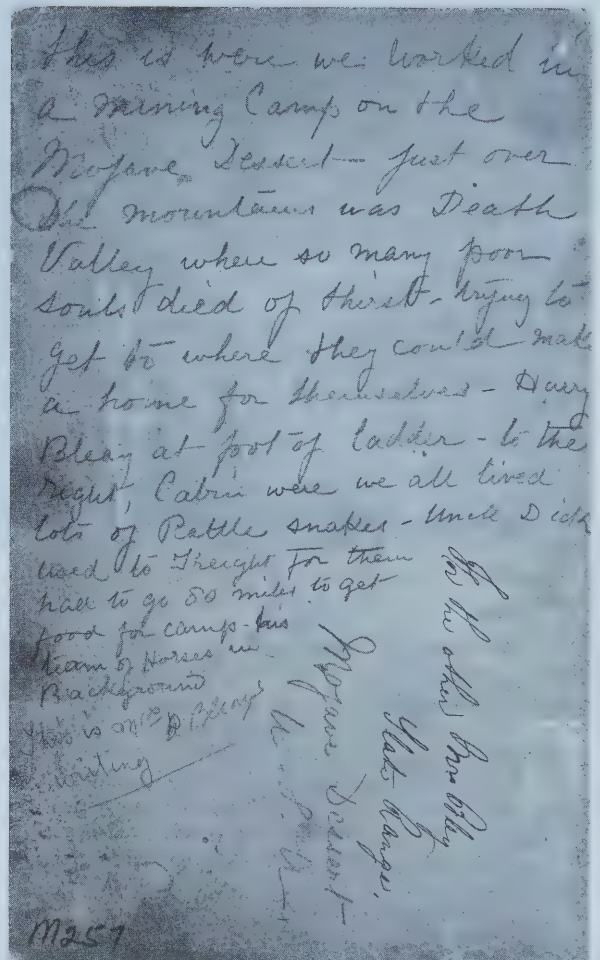 this is were we worked in
a mining Camp on the
Mojave Dessert - just over
the mountains was Death
Valley where so many poor
souls died of thirst - trying to
get to where they could make
a home for themselves - Harry
Bleay at foot of ladder - to the
right, Cabin were we all lived
lots of Rattle snakes - Uncle Dick
used to Freight for them
had to go 80 miles to get
food for camp - his
team of Horses in
Background
this is Mrs B
writing
Mojave Dessert
Slate Range,
the other
M257